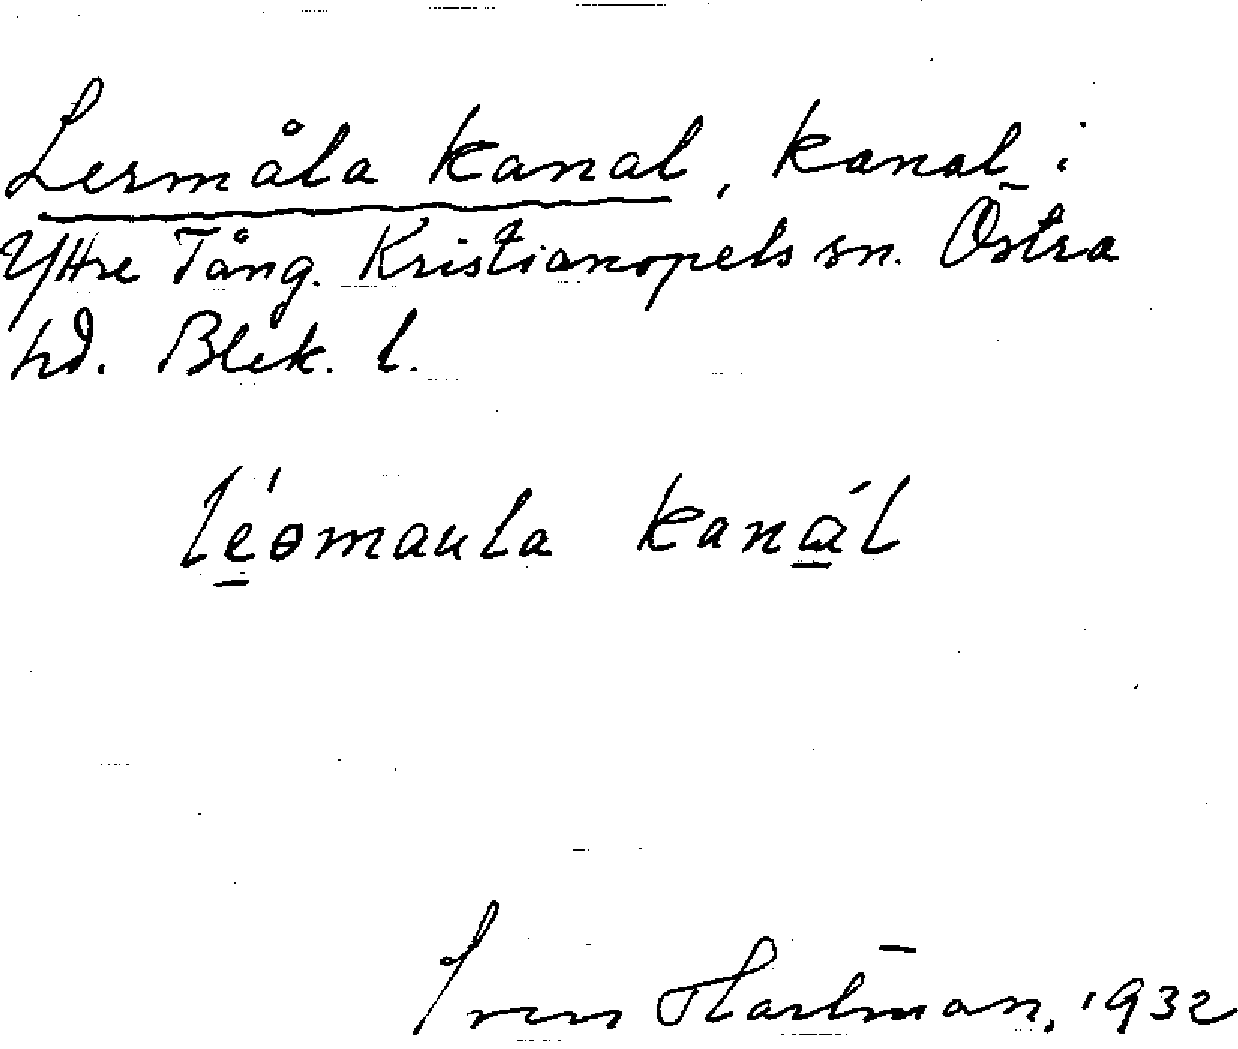 Lermåla kanal, kanal i
Yttre Tång. Kristianopels sn. Östra
hd. Blek. l.
léomaula kanál
Hartman, 1932